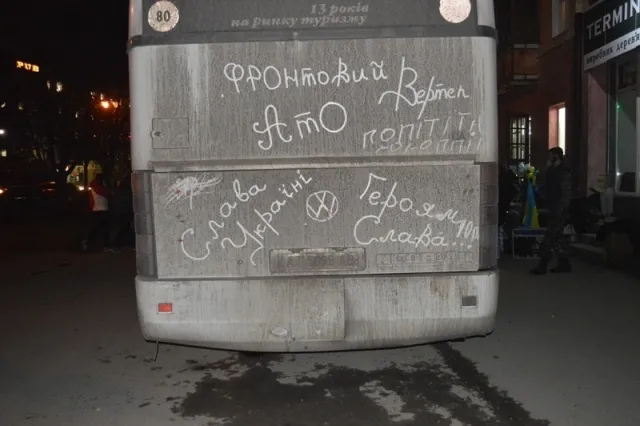 80
13 років
на ринку туризму
80
PUB
TERMIN
Фронтовий
Вертеп
АТО
Слава
Україні
Героям
Слава...